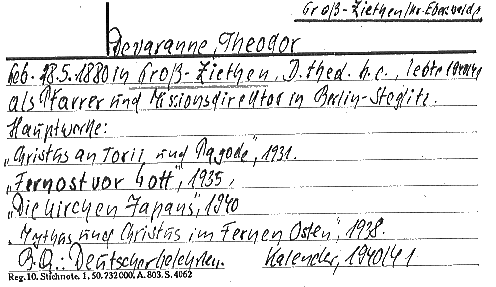 Groß-Ziethen/Kr. Eberswalde
Devaranne, Theodor
Geb. 28.5.1880 in Groß-Ziethen, D. theol. h. c., lebte 1940/41
als Pfarrer und Missionsdirektor in Berlin-Steglitz.
Hauptwerke:
„Christus an Torii und Pagode", 1931.
„Fernost vor Gott", 1935,
„Die Kirchen Japans", 1940
„Mythus und Christus im Fernen Osten", 1938.
B.Q.: Deutscher Gelehrten. Kalender, 1940/41
Reg. 10. Stichnote. 1, 50. 732 000. A. 803. S. 4062